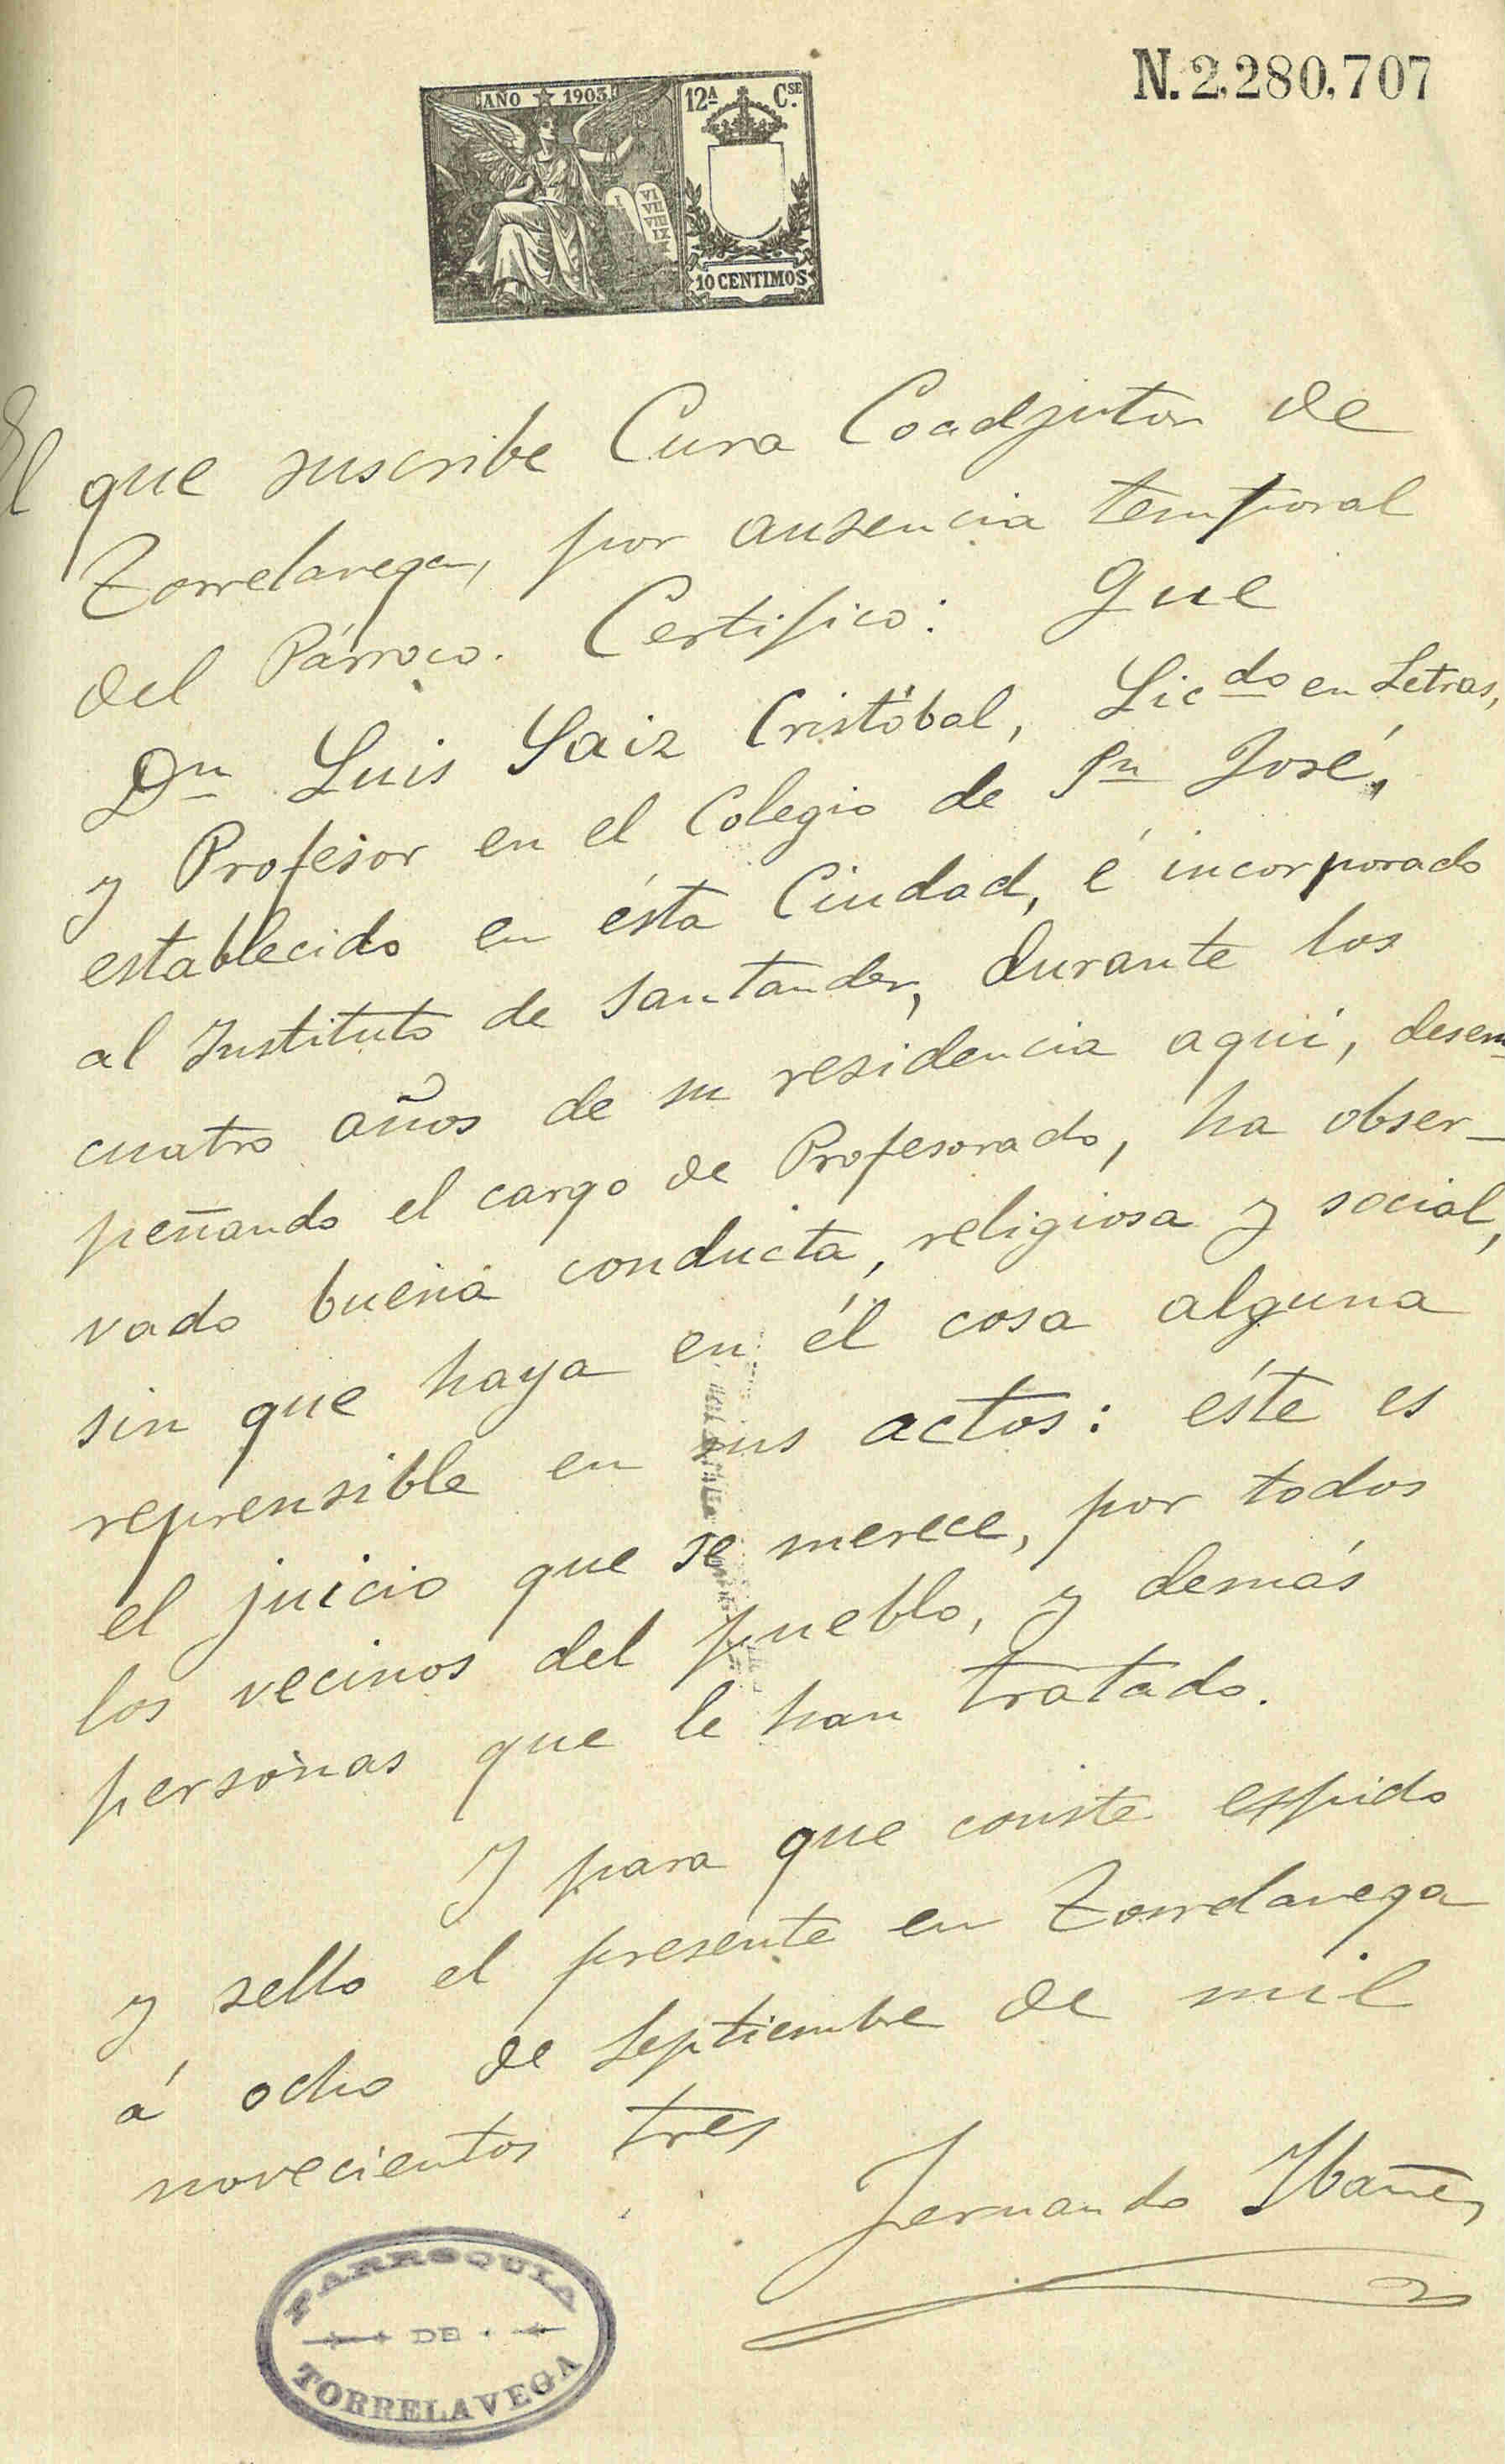 N.2,280,707
AÑO 1903.
12ª Cse.
I VI
VII
VIII
IX
X
10 CENTIMOS
El que suscribe Cura Coadjutor de
Torrelavega, por ausencia temporal
del Párroco. Certifico: Que
Dn Luis Saiz Cristóbal, Licdo en Letras,
y Profesor en el Colegio de Sn José,
establecido en ésta Ciudad, é incorporado
al Instituto de Santander, durante los
cuatro años de su residencia aquí, desem-
peñando el cargo de Profesorado, ha obser-
vado buena conducta, religiosa y social,
sin que haya en él cosa alguna
reprensible en sus actos: éste es
el juicio que se merece, por todos
los vecinos del pueblo, y demás
personas que le han tratado.
Y para que conste espido
y sello el presente en Torrelavega
á ocho de Septiembre de mil
novecientos tres
Fernando Ybañez
PARROQUIA
DE
TORRELAVEGA